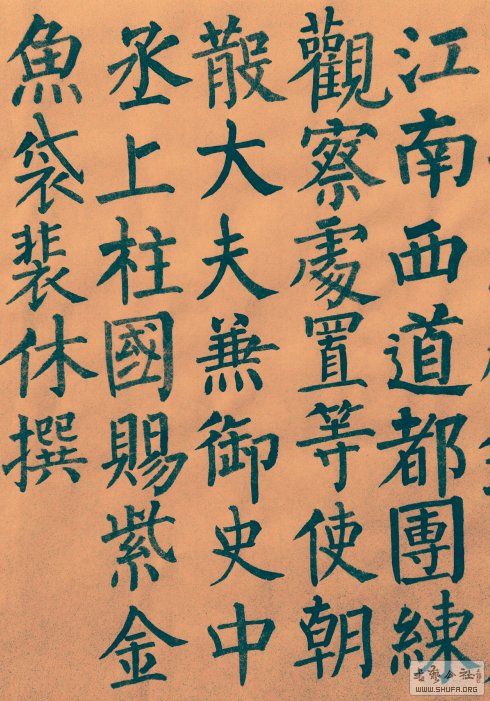 江南西道都團練
觀察處置等使朝
散大夫兼御史中
丞上柱國賜紫金
魚袋裴休撰
WWW.SHUFA.ORG